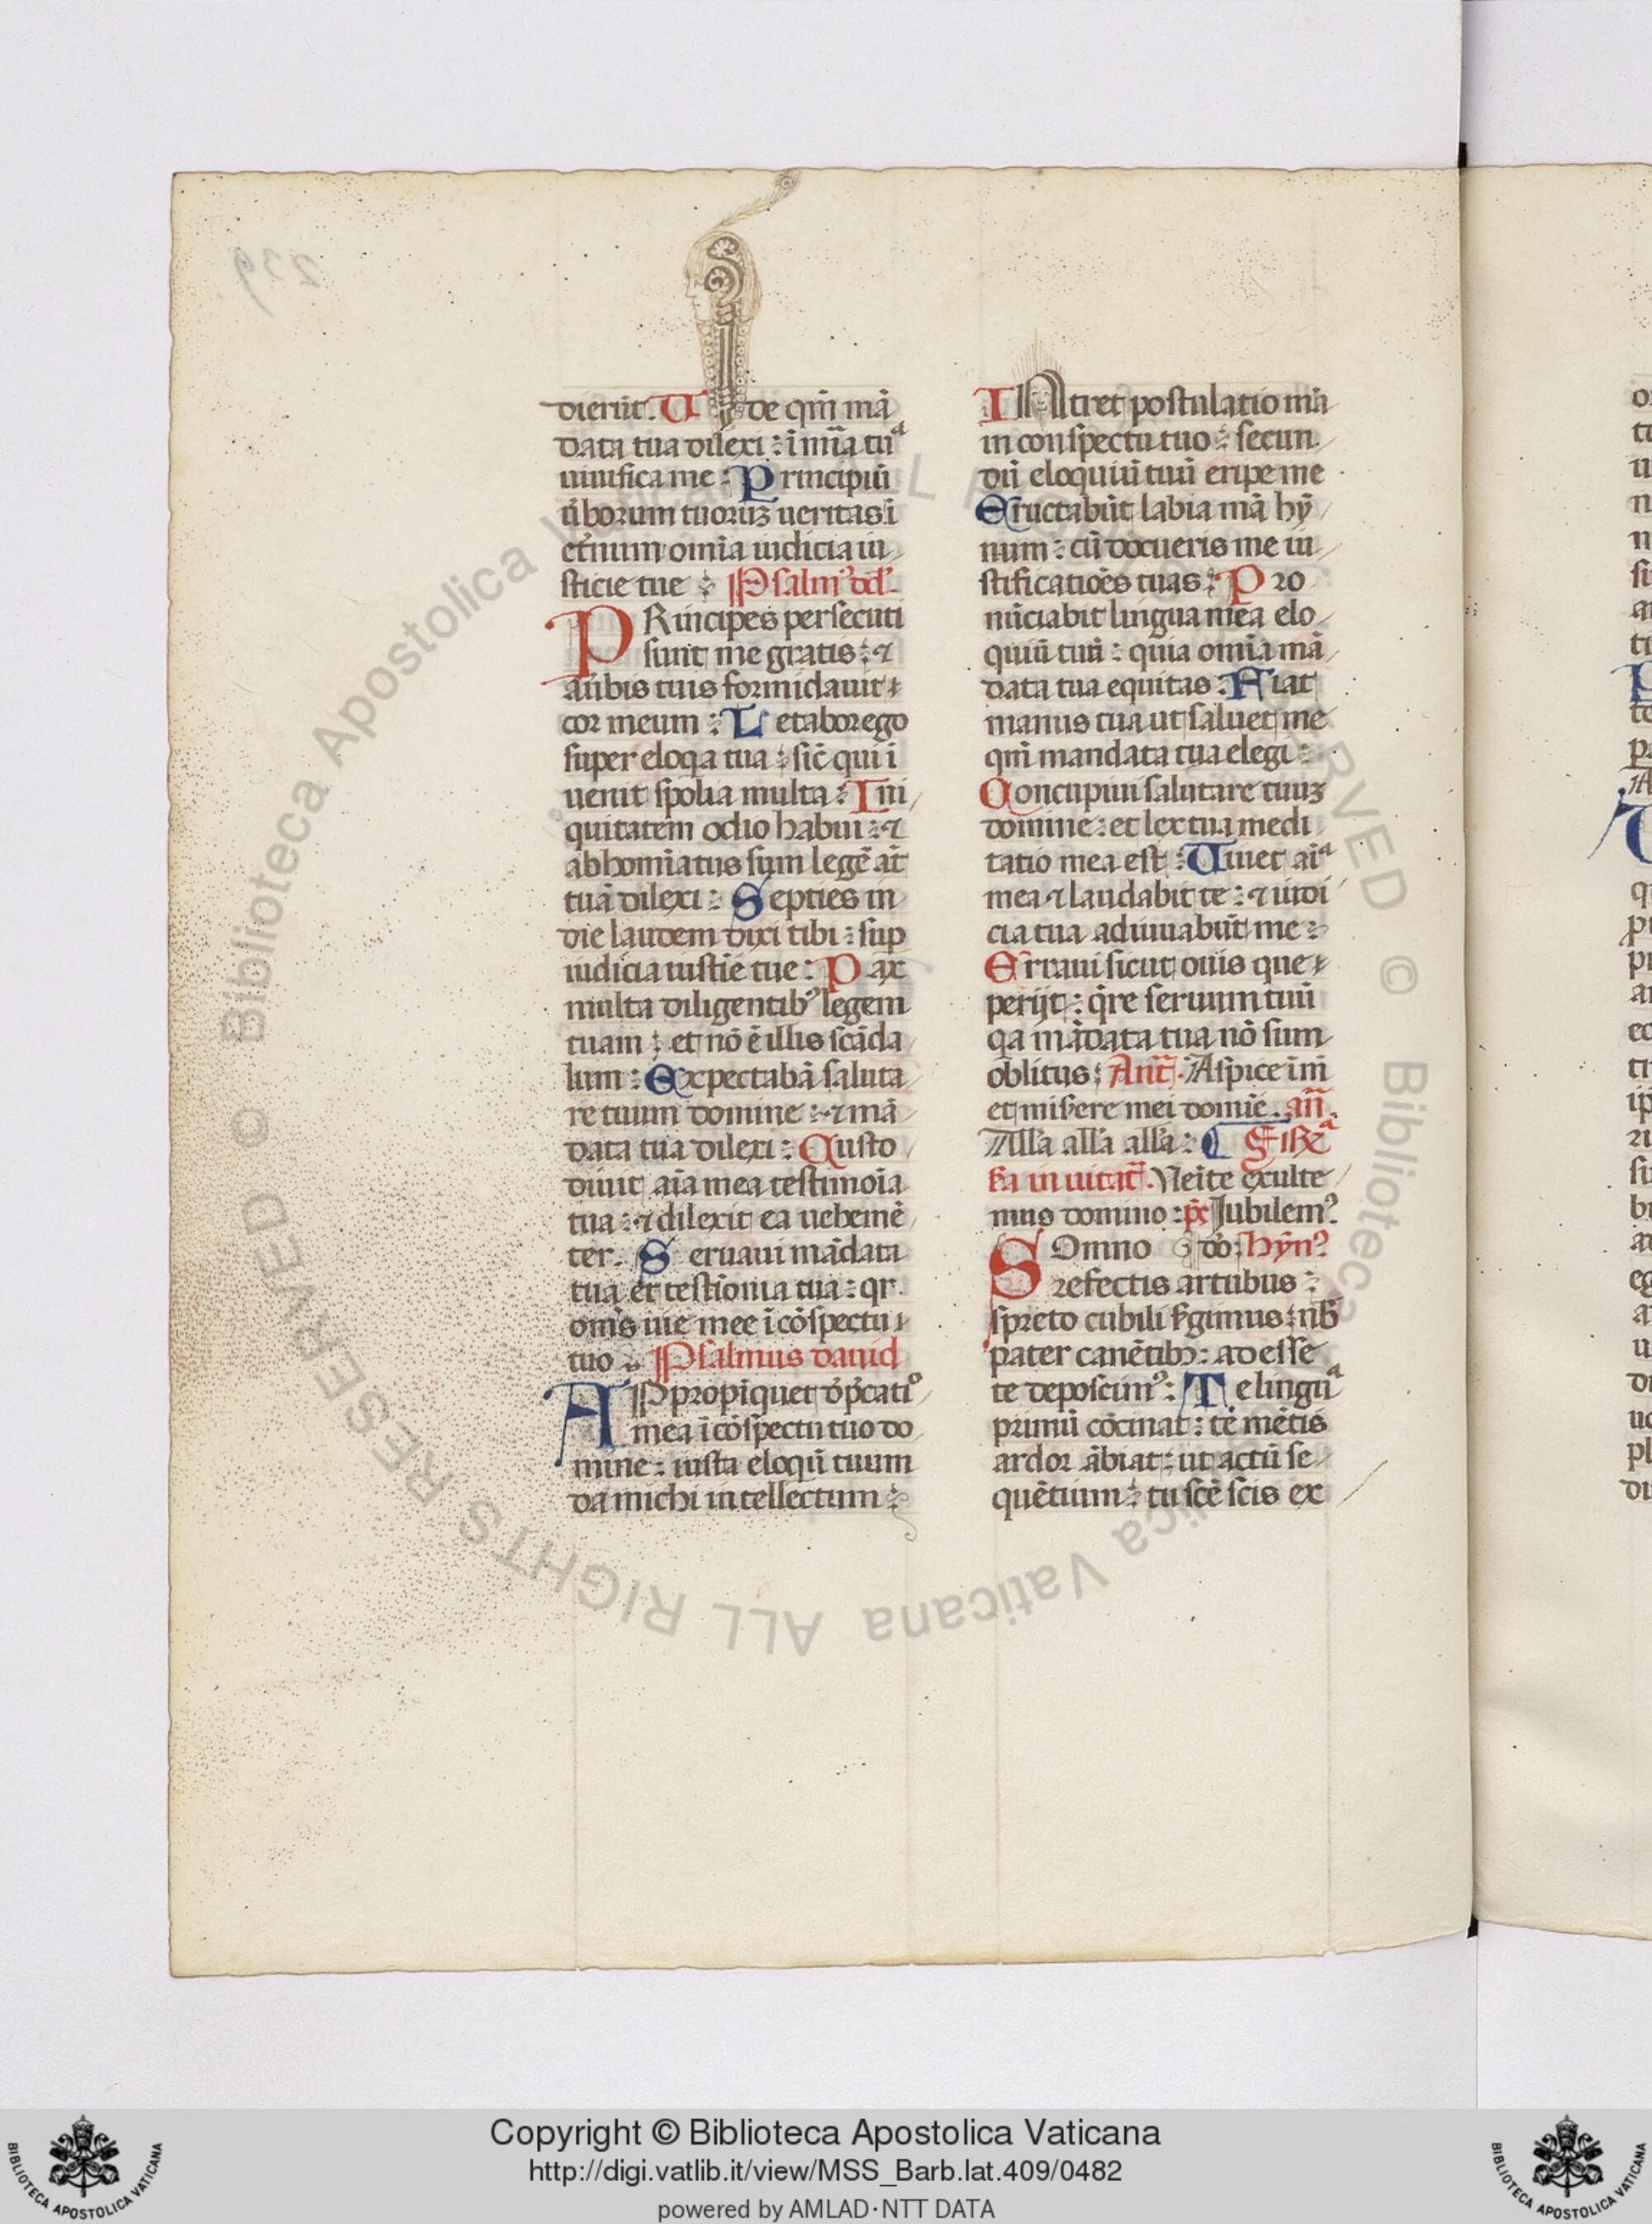 dierūt. Uide qm̄ mā
data tua dilexi : ī mīa tuᵃ
uiuifica me : Principiū
ūborum tuorū ueritas : ī
et̄num omīa iudicia iu
sticie tue : Psalm᾿ dd̄.
PRincipes persecuti
sunt me gratis : ⁊
a ūbis tuis formidauit
cor meum : Letabor ego
super eloqa tua : sic̄ qui ī
uenit spolia multa : Ini
quitatem odio habui : ⁊
abhomīatus sum legē at̄
tuā dilexi : Septies in
die laudem dixi tibi : sup
iudicia iustīe tue : Pax
multa diligentib᾿ legem
tuam : et nō ē illis scāda
lum : Expectabā saluta
re tuum domine : ⁊ mā
data tua dilexi : Custo
diuit aīa mea testimoīa
tua : ⁊ dilexit ea uehemē
ter. Seruaui mādata
tua et testīonia tua : qr
om̄s uie mee ī cōspectu
tuo : Psalmus dauid
APpropīquet dp̄cati᾿
mea ī cōspectu tuo do
mine : iusta eloqū tuum
da michi intellectum :
INtret postulatio mā
in conspectu tuo : secun
dū eloquiū tuū eripe me
Eructabūt labia mā hȳ
num : cū docueris me iu
stificatiōes tuas : Pro
nūciabit lingua mea elo
quiū tuū : quia omīa mā
data tua equitas : Fiat
manus tua ut saluet me
qm̄ mandata tua elegi :
Concupiui salutare tuuꝫ
domine : et lex tua medi
tatio mea est : Uiuet aīᵃ
mea ⁊ laudabit te : ⁊ iudi
cia tua adiuuabūt me :
Erraui sicut ouis que
perijt : q̄re seruum tuū
qa mādata tua nō sum
oblitus : Ant̄. Aspice ī mī
et misere mei domīe. an̄.
All̄a all̄a all̄a : 
in uitat̄. Ueīte exulte
mus domino : ps̄ Jubilem᾿
SOmno dō : hȳn᾿
refectis artubus :
spreto cubili s̄gimus : nb̄
pater canētibꝫ : adesse
te deposcim᾿ : Te linguᵃ
primū cōcinat : te mētis
ardor ābiat : ut actū se
quētium : tu scē scis ex
Copyright © Biblioteca Apostolica Vaticana
http://digi.vatlib.it/view/MSS_Barb.lat.409/0482
powered by AMLAD·NTT DATA